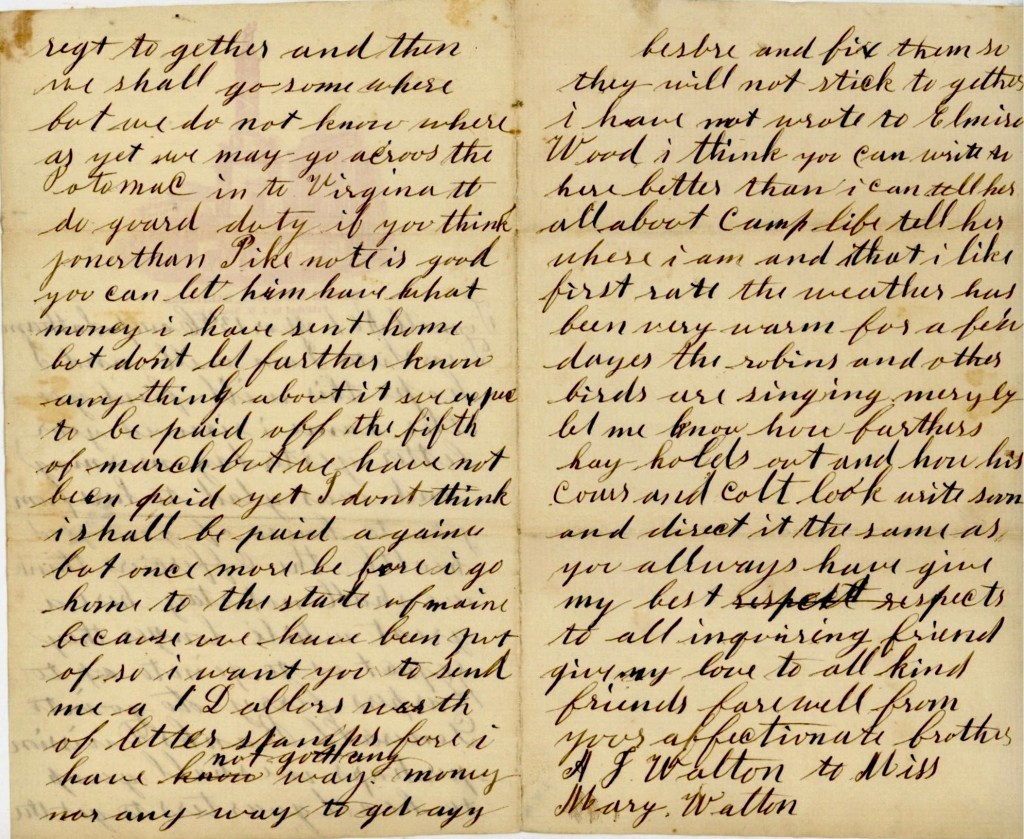 regt to gether and then
we shall go some where
but we do not know where
as yet we may go across the
Potomac in to Virgina tt
do guard duty if you think
jonerthan Pike note is good
you can let him have what
money i have sent home
but don't let farther know
any thing about it we expec
to be paid off the fifth
of march but we have not
been paid yet I dont think
i shall be paid a gaine
but once more be fore i go
home to the state of maine
because we have been put
of so i want you to send
me a 1 Dallors worth
of letter stamps fore i
have know not got any way. money
nor any way to get ayy
besbre and fix them so
they will not stick to gether
i have not wrote to Elmira
Wood i think you can write to
here better than i can tell her
all about Camp life tell her
where i am and that i like
first rate the weather has
been very warm for a few
dayes the robins and other
birds are singing meryly
let me know how farthers
hay holds out and how his
cows and colt look write soon
and direct it the same as
you allways have give
my best respectt respects
to all inquiring friend
give my love to all kind
friends farewell from
your affectionate brother
A J Walton to Miss
Mary. Walton